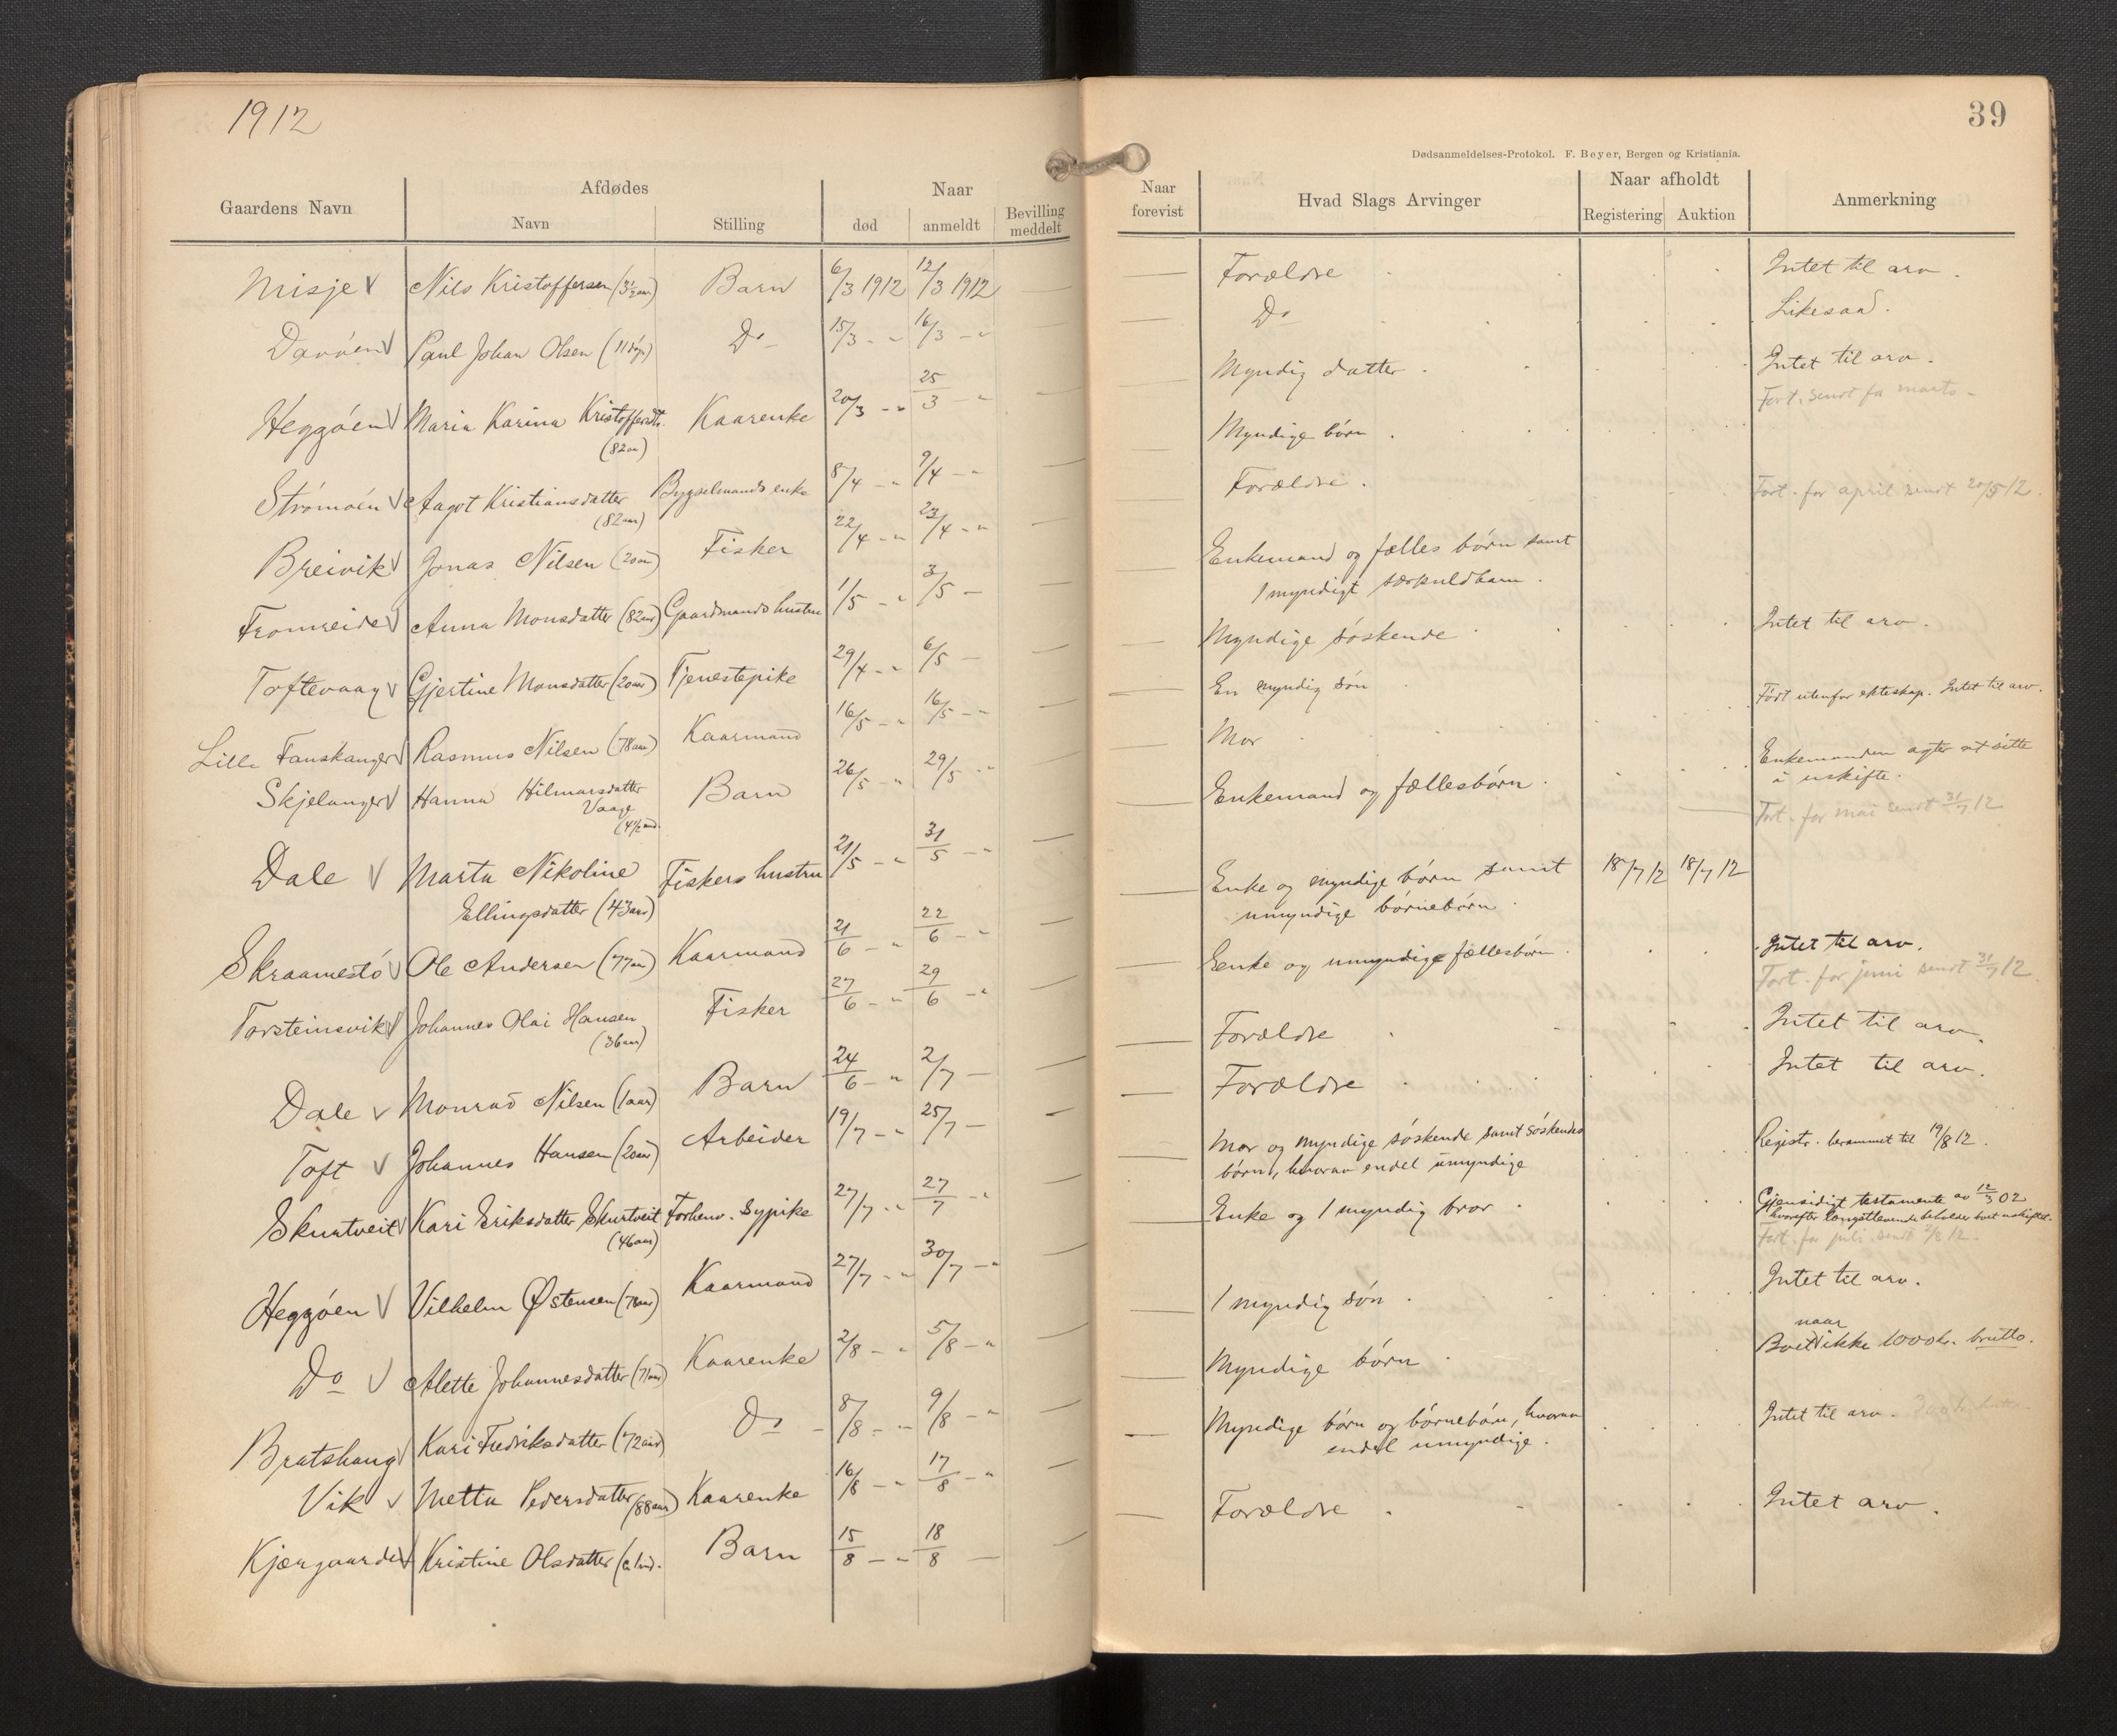 1912
Gaardens Navn
Afdødes
Navn
Stilling
Naar
død
anmeldt
Bevilling meddelt
Misje Nils Kristoffersen (3½ aar) Barn 6/3 1912 12/3 1912
Davøen Paul Johan Olsen (11 døgn) Do 15/3 - " 16/3 - "
Heggøen Maria Karina Kristoffersdtr. Kaarenke 20/3 - " 25/3 - "
(82 aar)
Strømøen Aagot Kristiansdatter Bygselmands enke 8/4 - " 9/4 - "
(82 aar)
Breivik Jonas Nilsen (20 aar) Fisker 22/4 - " 23/4 - "
Fromreide Anna Monsdatter (82 aar) Gaardmands hustru 1/5 - " 3/5 -
Toftevaag Gjertine Monsdatter (20 aar) Tjenestepike 29/4 - " 6/5 -
Lille Fanskanger Rasmus Nilsen (78 aar) Kaarmand 16/5 - " 16/5 - "
Skjelanger Hanna Hilmarsdatter Barn 26/5 - " 29/5 - "
Vaage
(4½ md.
Dale Marta Nikoline Fiskers hustru 21/5 - " 31/5 - "
Ellingsdatter (43 aar)
Skraamestø Ole Andersen (77 aar) Kaarmand 21/6 - " 22/6 - "
Torsteinsvik Johannes Olai Hansen Fisker 27/6 - " 29/6 - "
(36 aar)
Dale Monrad Nilsen (1 aar) Barn 24/6 - " 2/7 -
Toft Johannes Hansen (20 aar) Arbeider 19/7 - " 25/7 -
Skurtveit Kari Eriksdatter Skurtveit Forhenv. Sypike 27/7 - " 27/7 - "
(46 aar)
Heggøen Vilhelm Østensen (78 aar) Kaarmand 27/7 - " 30/7 - "
Do Alette Johannesdatter (71 aar) Kaarenke 2/8 - " 5/8 - "
Bratshaug Kari Fredriksdatter (72 aar) Do 8/8 - " 9/8 - "
Vik Metta Pedersdatter (88 aar) Kaarenke 16/8 - " 17/8 - "
Kjærgaarden Kristine Olsdatter Barn 15/8 - " 18/8 -
39
Dødsanmeldelses-Protokol. F. Beyer, Bergen og Kristiania.
Naar forevist
Hvad Slags Arvinger
Naar afholdt
Registering
Auktion
Anmerkning
Forældre Intet til arv.
Do Likesaa.
Myndig datter. Intet til arv.
Fort. sendt for marts -
Myndige børn.
Forældre. Fort. for april sendt 20/5 12.
Enkemand og fælles børn samt
1 myndigt særkuldbarn.
Myndige søskende Intet til arv.
En myndig søn Født utenfor ekteskap. Intet til arv.
Mor
Enkemanden agter at sitte
i uskifte.
Enkemand og fællesbørn.
Fort. for mai sendt 31/7 12
Enke og myndige børn samt 18/7 12 18/7 12
umyndige børnebørn
Enke og umyndige fællesbørn. Intet til arv.
Fort. for juni sendt 31/7 12.
Forældre Intet til arv.
Forældre Intet til arv.
Mor og myndige søskende samt søskendes Registr. berammet til 19/8 12.
børn, hvorav endel umyndige
Enke og 1 myndig bror. Gjensidigt testamente av 12/3 02
hvorefter længstlevende beholder boet uskiftet.
Fort. for juli sendt 2/8 12.
1 myndig søn. Intet til arv.
Myndige børn. Boet naar ikke 1000 kr. brutto.
Myndige børn og børnebørn, hvorav Intet til arv.
endel umyndige.
Forældre. Intet arv.